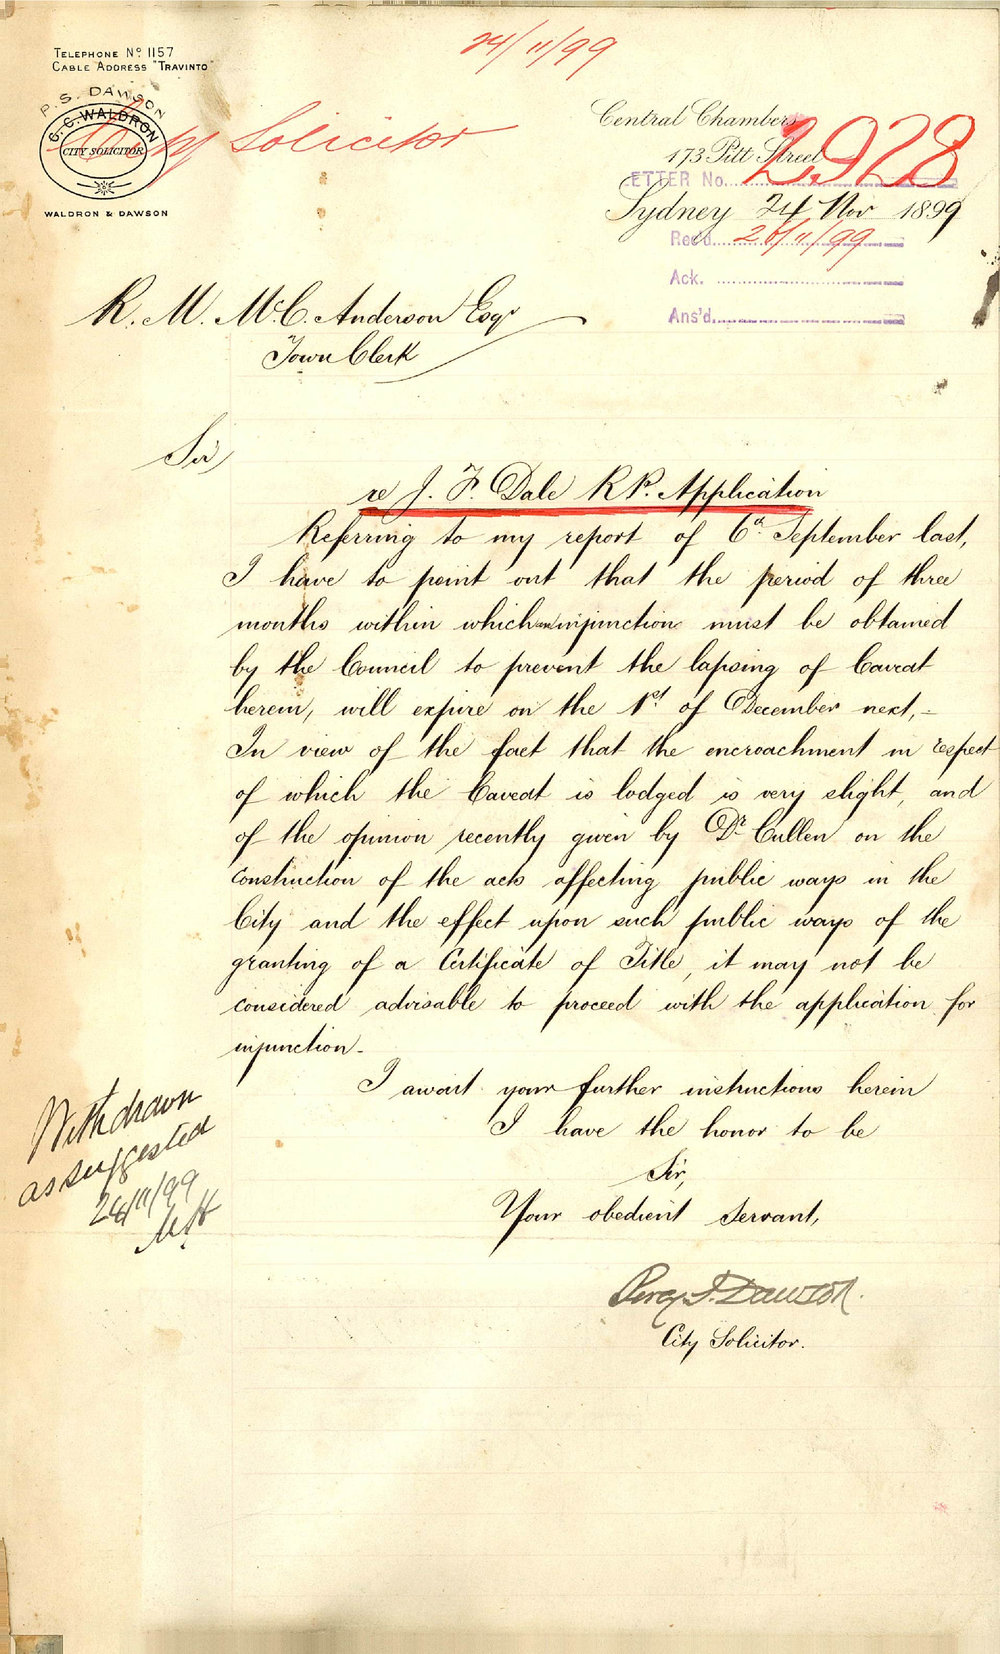 24/11/99
TELEPHONE No 1157
CABLE ADDRESS "TRAVINTO"
P. S. DAWSON
C. C. WALDRON
CITY SOLICITOR
WALDRON & DAWSON
City Solicitor
Central Chambers
173 Pitt Street
LETTER No. 2928
Sydney 24 Nov 1899
Rec'd. 26/11/99
Ack.
Ans'd.
R. M. McC. Anderson Esqr
Town Clerk
Sir,
re J. F. Dale R.P. Application
Referring to my report of 6th September last,
I have to point out that the period of three
months within which an injunction must be obtained
by the Council to prevent the lapsing of Caveat
herein, will expire on the 1st of December next, –
In view of the fact that the encroachment in respect
of which the Caveat is lodged is very slight, and
of the opinion recently given by Dr Cullen on the
construction of the acts affecting public ways in the
City and the effect upon such public ways of the
granting of a Certificate of Title, it may not be
considered advisable to proceed with the application for
injunction –
I await your further instructions herein
I have the honor to be
Sir,
Your obedient servant,
Percy S. Dawson.
City Solicitor.
Withdrawn
as suggested
/11/99